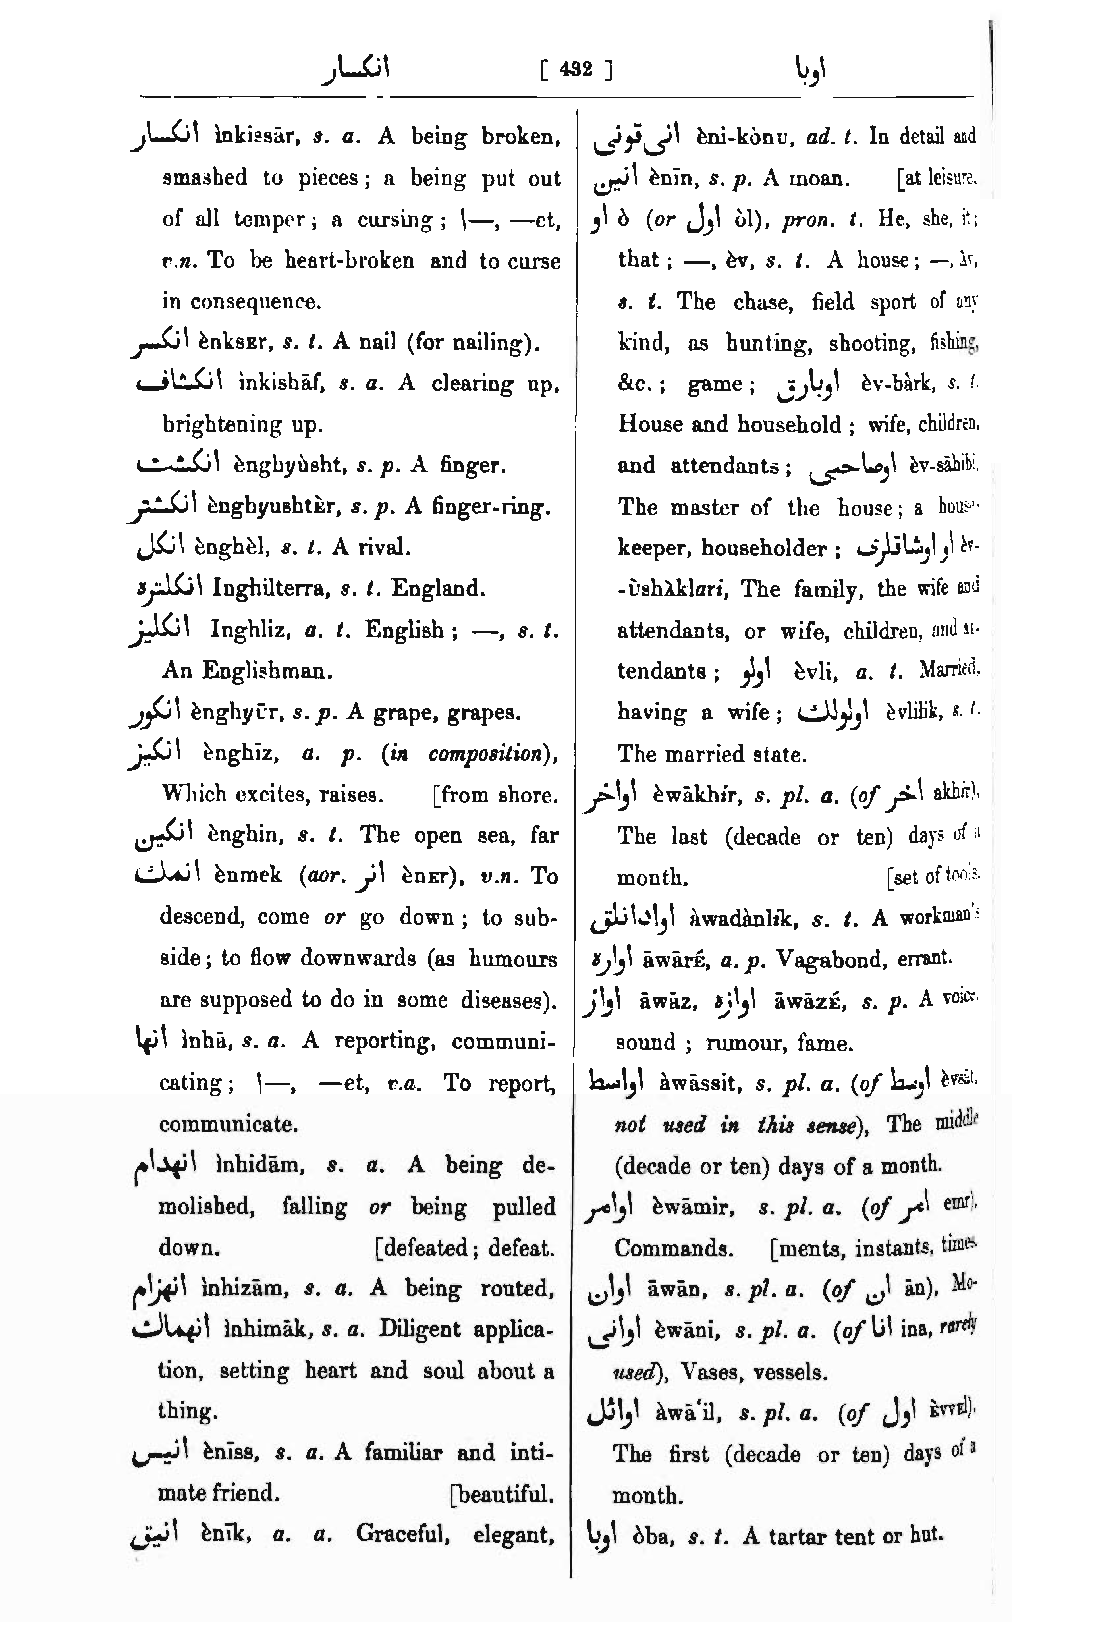 انكسار [ 432 ] اوبا
انكسار ìnkissār, s. a. A being broken,
smashed to pieces; a being put out
of all temper; a cursing; \—, —et,
v.n. To be heart-broken and to curse
in consequence.
انكسر ènksᴇr, s. t. A nail (for nailing).
انكشاف ìnkishāf, s. a. A clearing up,
brightening up.
انكشت ènghyùsht, s. p. A finger.
انكشتر ènghyushtᴇ̀r, s. p. A finger-ring.
انكل ènghèl, s. t. A rival.
انكلتره Inghilterra, s. t. England.
انكليز Inghliz, a. t. English; —, s. t.
An Englishman.
انكور ènghyūr, s. p. A grape, grapes.
انكيز ènghīz, a. p. (in composition),
Which excites, raises. [from shore.
انكين ènghin, s. t. The open sea, far
انمك ènmek (aor. انر ènᴇr), v.n. To
descend, come or go down; to sub-
side; to flow downwards (as humours
are supposed to do in some diseases).
انها ìnhā, s. a. A reporting, communi-
cating; \—, —et, v.a. To report,
communicate.
انهدام ìnhidām, s. a. A being de-
molished, falling or being pulled
down. [defeated; defeat.
انهزام ìnhizām, s. a. A being routed,
انهماك ìnhimāk, s. a. Diligent applica-
tion, setting heart and soul about a
thing.
انيس ènīss, s. a. A familiar and inti-
mate friend. [beautiful.
انيق ènīk, a. a. Graceful, elegant,
انى قونى èni-kònu, ad. t. In detail and
انين ènīn, s. p. A moan. [at leisure.
او ò (or اول òl), pron. t. He, she, it;
that; —, èv, s. t. A house; —, àv,
s. t. The chase, field sport of any
kind, as hunting, shooting, fishing,
&c.; game; اوبارق èv-bàrk, s. t.
House and household; wife, children,
and attendants; اوصاحبى èv-sāhibi,
The master of the house; a house-
keeper, householder; او اوشاقلرى èv-
-ùshàklari, The family, the wife and
attendants, or wife, children, and at-
tendants; اولو èvli, a. t. Married,
having a wife; اولولك èvlilik, s. t.
The married state.
اواخر èwākhir, s. pl. a. (of اخر akhir),
The last (decade or ten) days of a
month. [set of tools.
اوادانلق àwadànlik, s. t. A workman's
اواره āwāré, a. p. Vagabond, errant.
اواز āwāz, اوازه āwāzé, s. p. A voice,
sound; rumour, fame.
اواسط àwāssit, s. pl. a. (of اوسط èvsàt,
not used in this sense), The middle
(decade or ten) days of a month.
اوامر èwāmir, s. pl. a. (of امر emr),
Commands. [ments, instants, times.
اوان āwān, s. pl. a. (of ان ān), Mo-
اوانى èwāni, s. pl. a. (of انا ina, rarely
used), Vases, vessels.
اوائل àwā'il, s. pl. a. (of اول ᴇ̀vvᴇl),
The first (decade or ten) days of a
month.
اوبا òba, s. t. A tartar tent or hut.